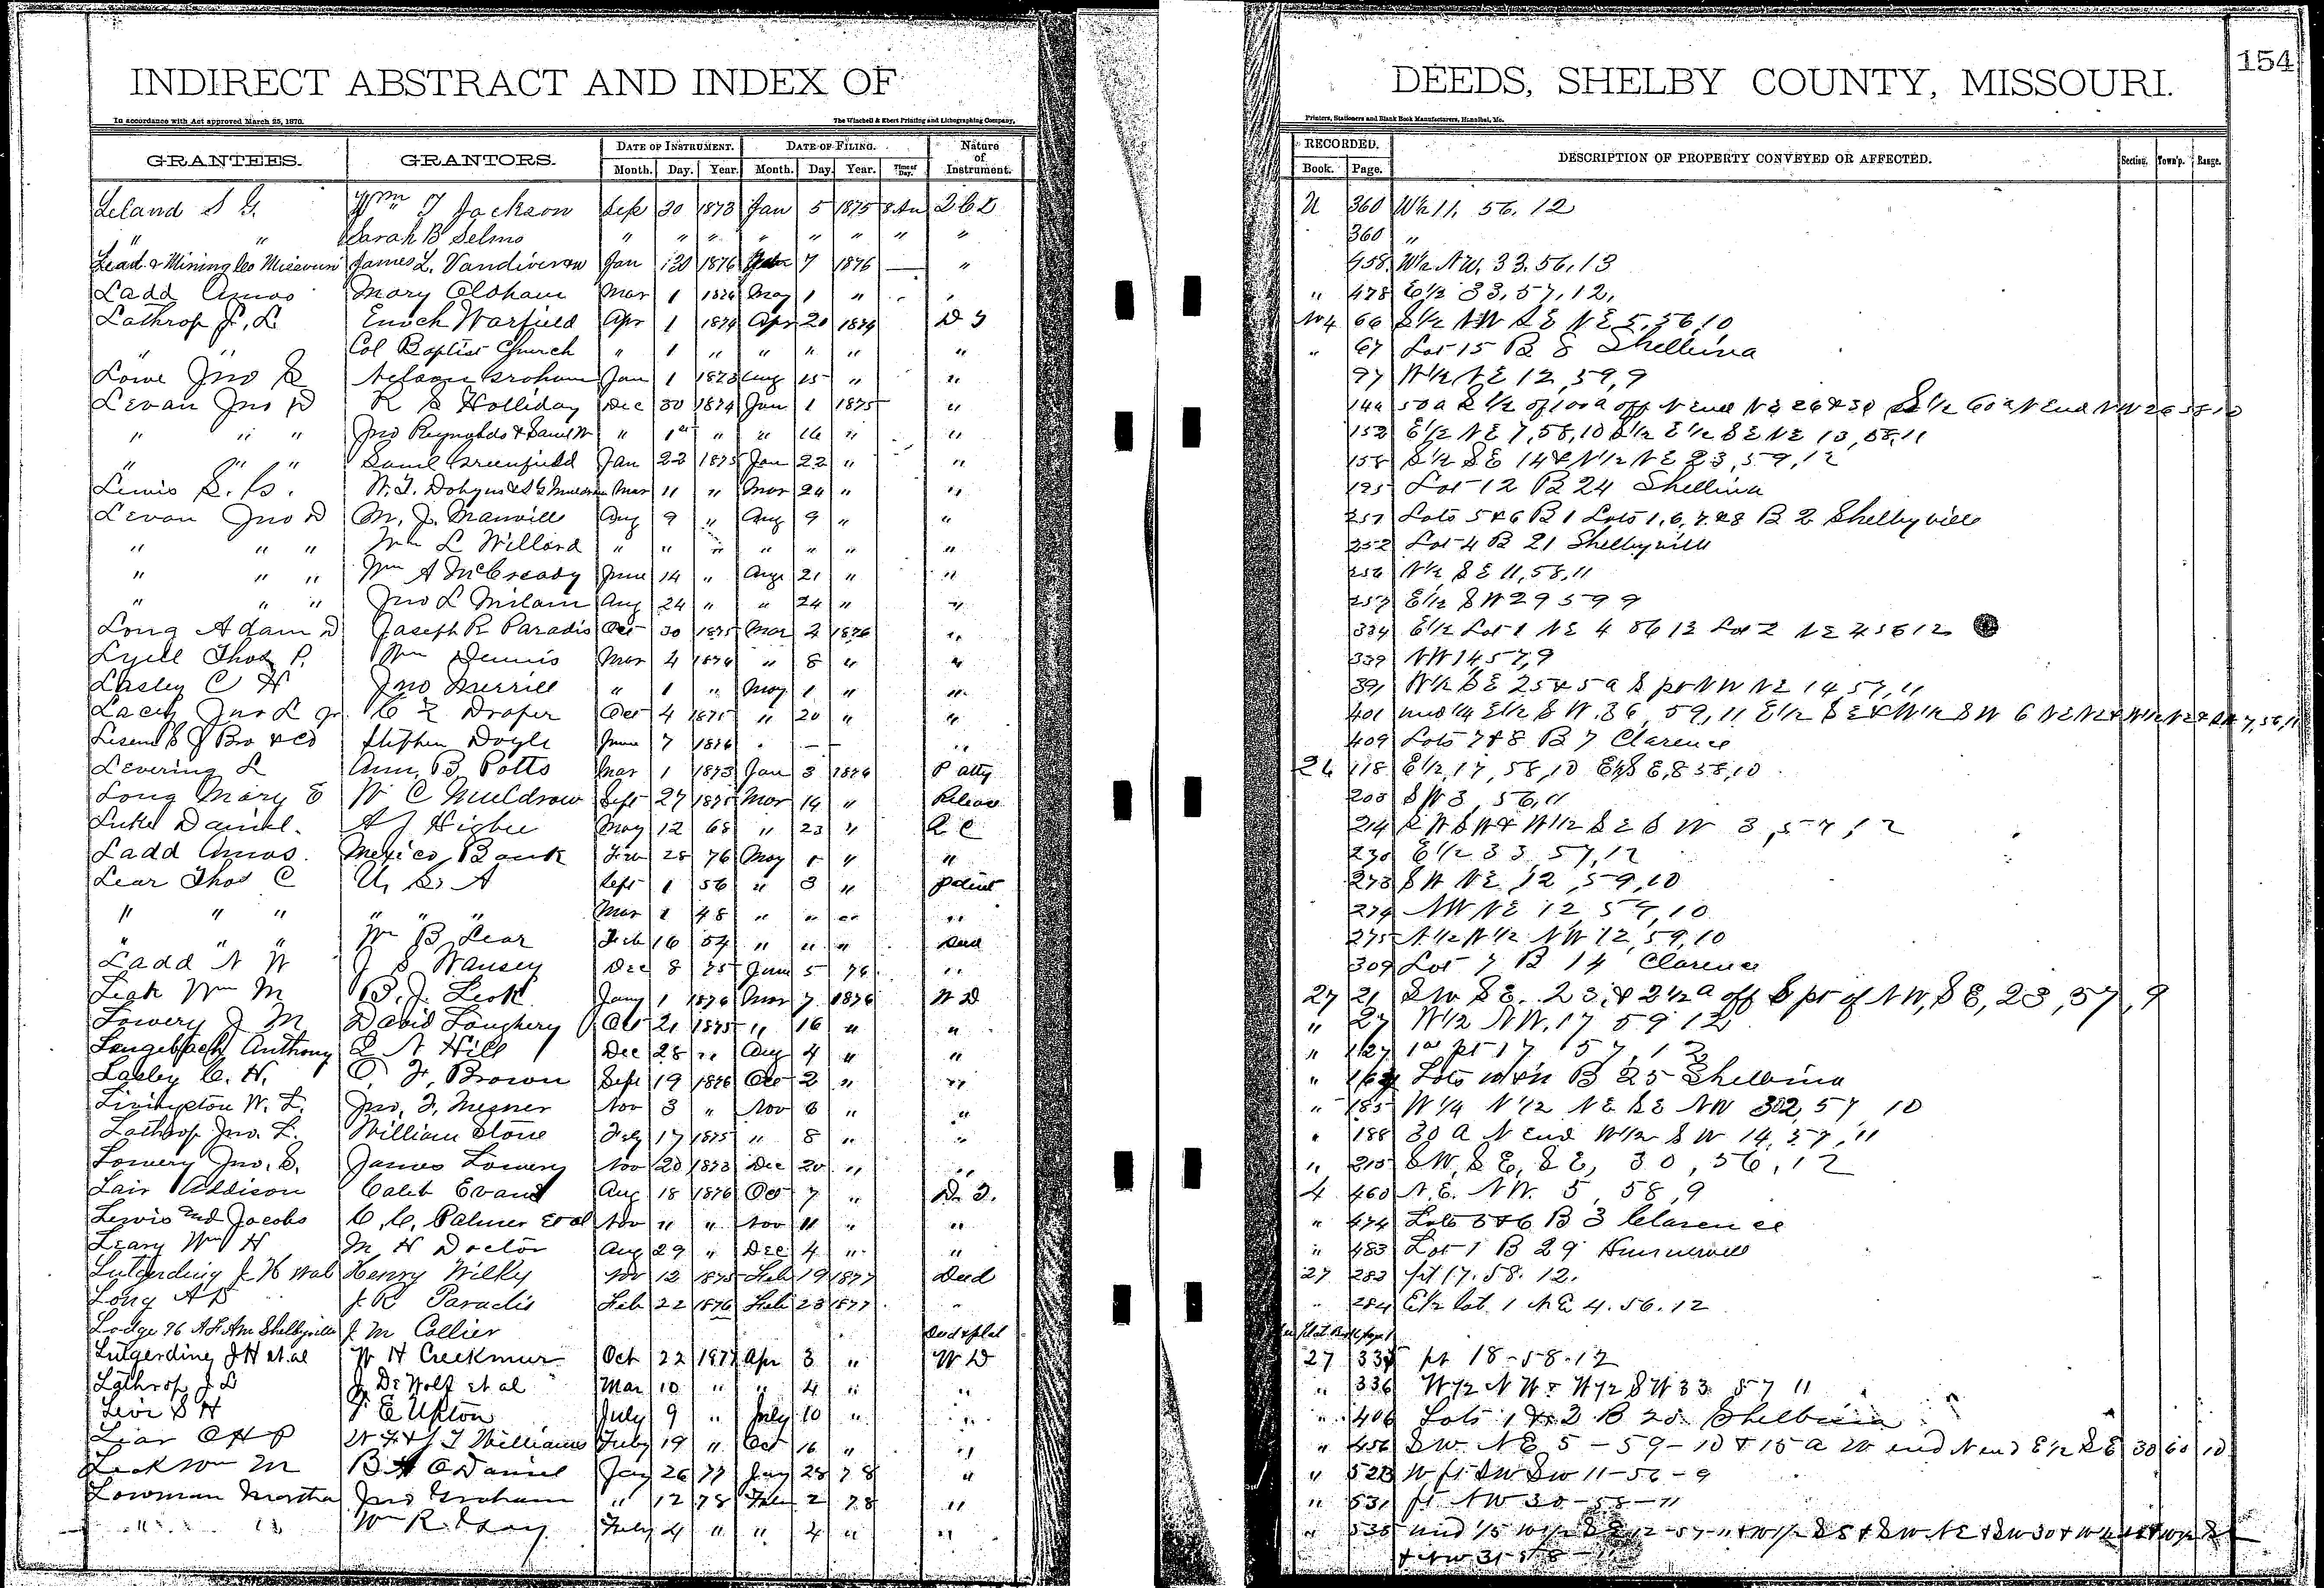 INDIRECT ABSTRACT AND INDEX OF DEEDS, SHELBY COUNTY, MISSOURI. 154
In accordance with Act approved March 25, 1870. The Winchell & Ebert Printing and Lithographing Company, Printers, Stationers and Blank Book Manufacturers, Hannibal, Mo.
GRANTEES. GRANTORS. DATE OF INSTRUMENT. DATE OF FILING. Nature of Instrument. RECORDED. DESCRIPTION OF PROPERTY CONVEYED OR AFFECTED. Section. Town'p. Range.
Month. Day. Year. Month. Day. Year. Time of Day. Book. Page.
Leland S G. Wm T Jackson Sep 30 1873 Jan 5 1875 8 Am 2 C D U 360 W½ 11. 56. 12
" " Sarah B Selmo " " " " " " " " 360 "
Lead & Mining Co Missouri James L. Vandiver Jan 30 1876 7 1876 — " 458 W½ NW. 33. 56. 13
Ladd Amos Mary Oldham Mar 1 1876 May 1 " " 478 E½ 33, 57, 12,
Lathrop J. L. Enoch Warfield Apr 1 1874 Apr 20 1874 D T 66 S½ NW SE NE 5, 56, 10
" " Col Baptist Church " 1 " " " " " " 67 Lot 15 B 8 Shelbina
Lowe Jno S Nelson Graham Jan 1 1873 Aug 15 " " 97 W½ NE 12, 59, 9
Levan Jno D R S Holliday Dec 30 1874 Jan 1 1875 " 144 50 a S½ of 100 a off N end NE 26
" " " Jno Reynolds & " 1st " " 16 " " 152 E½ NE 7, 58, 10 S½ E½ SE NE 13, 58, 11
" " " Saml Greenfield Jan 22 1875 Jan 22 " " 158 S½ SE 14 & N½ NE 23, 59, 12
Lewis S. C. W. T. Dobyns Mar 11 " Mar 24 " " 195 Lot 12 B 24 Shelbina
Levan Jno D M. J. Manville Aug 9 " Aug 9 " " 251 Lots 5&6 B 1 Lots 1, 6, 7, &8 B 2 Shelbyville
" " " Wm L Willard " " " " " " " 252 Lot 4 B 21 Shelbyville
" " " Wm A McCready June 14 " Aug 21 " " 256 N½ SE 11, 58, 11
" " " Jno L Milam Aug 24 " " 24 " " 257 E½ SW 29 59 9
Long Adam D Joseph R Paradis Oct 30 1875 Mar 2 1876 " 334 E½ Lot 1 NE 4 56 12 Lot 2 NE 4 56 12
Lyell Thos P. Wm Dennis Mar 4 1876 " 8 " " 339 NW 14 57, 9
Lasley C H Jno Merrill " 1 " May 1 " " 391 W½ SE 25 & 5 a S pt NW NE 14 57, 11
Lacey Jno L Jr C Z Draper Oct 4 1875 " 20 " " 401 und ¼ E½ SW. 36, 59, 11 E½ SE & W½ SW 6
Bro & Co Stephen Doyle June 7 1876 " — — " 409 Lots 7&8 B 7 Clarence
Levering L Ann, B, Potts Mar 1 1873 Jan 3 1876 P atty 26 118 E½, 17, 58, 10 E½ SE, 8 58, 10
Long Mary E W C Muldrow Sept 27 1875 Mar 14 " Release 208 SW 3, 56, 11
Luke Daniel. A J Higbee May 12 68 " 23 " Q C 214 SW SW & W½ SE SW 3, 57, 12
Ladd Amos. Mexico Bank Feb 28 76 May 1 " " 230 E½ 33 57, 12
Lear Thos C U, S, A Sept 1 56 " 3 " Patent 273 SW NE, 12, 59, 10
" " " " " " Mar 1 48 " " " " 274 NW NE 12, 59, 10
" " " Wm B Lear Feb 16 54 " " " Deed 275 N½ W½ NW 12, 59, 10
Ladd N W J S Wansey Dec 8 75 June 5 76 " 309 Lot 7 B 14 Clarence
Leak Wm M B. J. Leak Jany 1 1876 Mar 7 1876 W D 27 21 SW SE. 23, & 2½ a off S pt of NW, SE, 23, 57, 9
Lowery J M David Loughery Oct 21 1875 " 16 " " " 27 W½ NW. 17 59 12
Langebach Anthony L N Hill Dec 28 " Aug 4 " " " 127 1 a pt 17 57, 12
Lasley C. H. O. F. Brown Sept 19 1876 Oct 2 " " " Lots 10 & 11 B 25 Shelbina
Livingston W. L. Jno, F, Mesner Nov 3 " Nov 6 " " " 185 W¼ N½ NE SE NW 302, 57, 10
Lathrop Jno. L. William Stone July 17 1875 " 8 " " " 188 30 a N end W½ SW 14, 57, 11
Lowery Jno, S. James Lowery Nov 20 1873 Dec 20 " " " 215 SW, SE, SE, 30, 56, 12
Lair Addison Caleb Evans Aug 18 1876 Oct 7 " D. T. 4 460 N. E. NW. 5, 58, 9
Lewis and Jacobs C, C, Palmer et al Nov " " Nov 11 " " " 474 Lots 5&6 B 3 Clarence
Leary Wm H M H Doctor Aug 29 " Dec 4 " " " 483 Lot 1 B 29 Hunnewell
Lutgerding J H et al Henry Wilky Nov 12 1875 Feb 19 1877 Deed 27 283 pt 17. 58. 12.
Long A D J. R Paradis Feb 22 1876 Feb 23 1877 " " 284 E½ lot 1 NE 4. 56. 12
Lodge 96 A F & Am Shelbyville J. M Collier Deed & plat Plat Book page 1
Lutgerding J H et. al W H Creekmur Oct 22 1877 Apr 3 " W D 27 335 pt 18-58-12
Lathrop J L J. De Wolf et al Mar 10 " " 4 " " " 336 W½ NW & W½ SW 33 57 11
Levi S H T E Upton July 9 " July 10 " " " 406 Lots 1 & 2 B 20 Shelbina
Liar O H P W F & J T Williams July 19 " Oct 16 " " " 456 SW. NE 5-59-10 & 15 a W end N end E½ SE 30 60 10
Leak Wm M B H O Daniel Jay 26 77 Jay 28 78 " " 523 W pt SW SW 11-56-9
Lowman Martha Jno Graham " 12 78 Feb 2 78 " " 531 pt NW 30-58-11
" " Wm R July 4 " " 4 " " " 535 und 1/5 W½ SE 12-57-11 & W½ SE & SW NE & SW 30
& NW 31-58-11